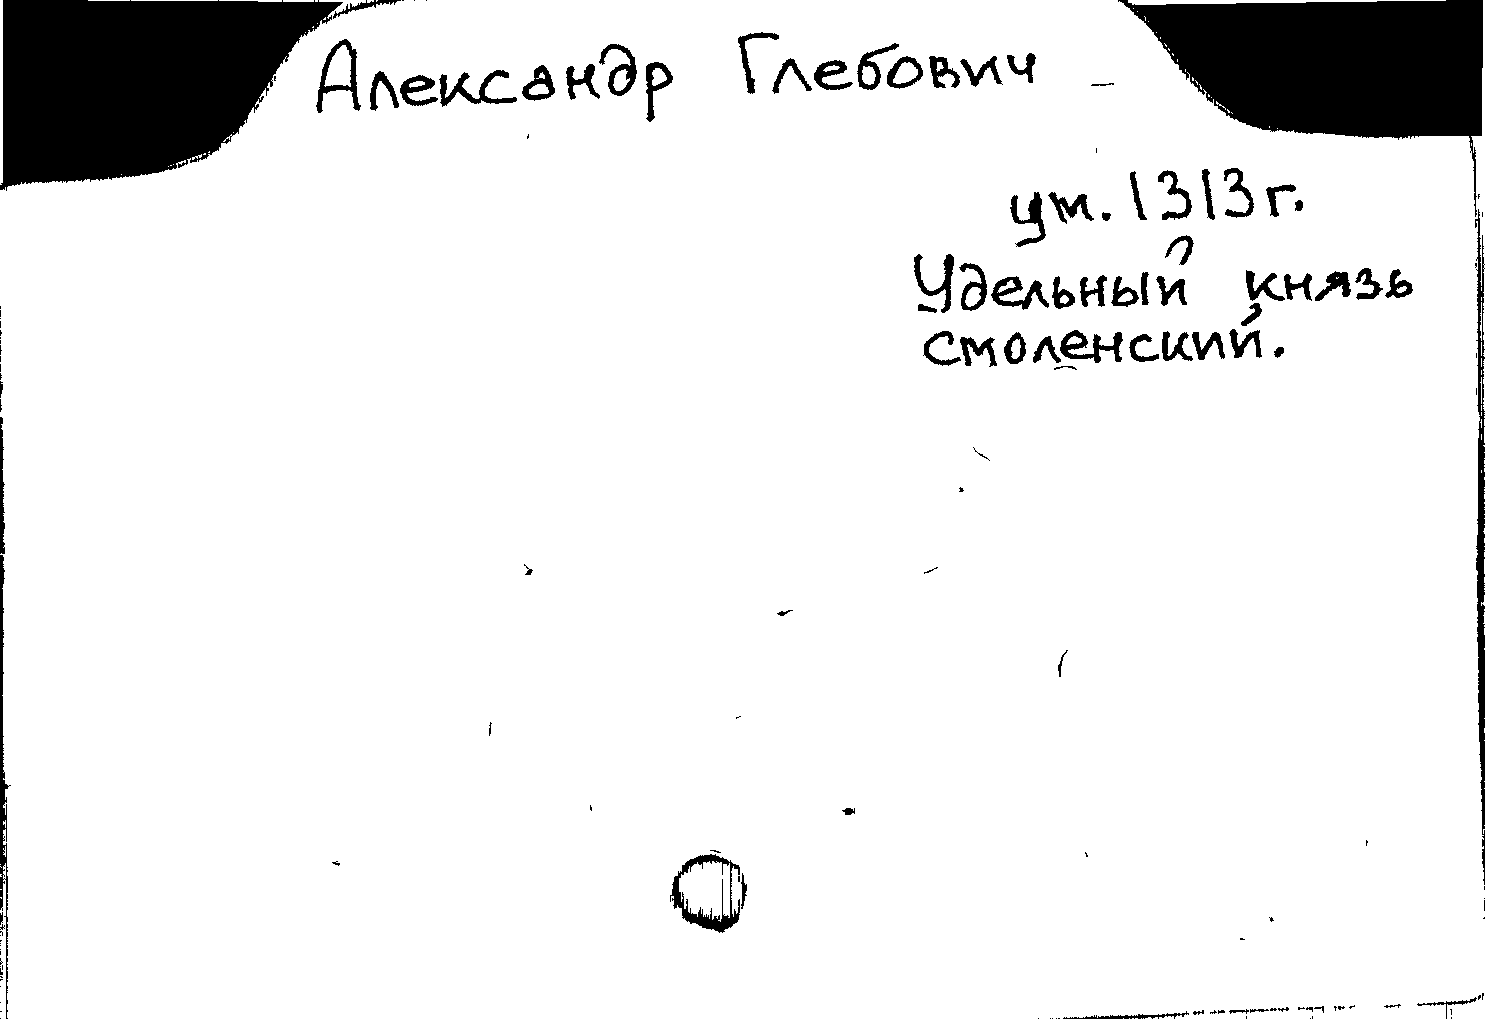 Александр Глебович
ум. 1313 г.
Удельный князь
смоленский.